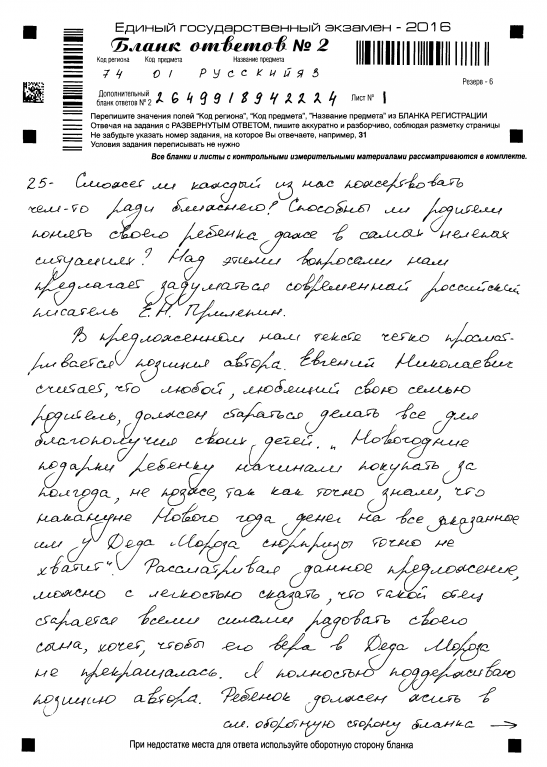 Единый государственный экзамен - 2016
Бланк ответов № 2
Код региона Код предмета Название предмета
74 01 РУССКИЙ ЯЗ
Резерв - 6
Дополнительный бланк ответов № 2 2649918942224 Лист № 1
Перепишите значения полей "Код региона", "Код предмета", "Название предмета" из БЛАНКА РЕГИСТРАЦИИ
Отвечая на задания с РАЗВЕРНУТЫМ ОТВЕТОМ, пишите аккуратно и разборчиво, соблюдая разметку страницы
Не забудьте указать номер задания, на которое Вы отвечаете, например, 31
Условия задания переписывать не нужно
Все бланки и листы с контрольными измерительными материалами рассматриваются в комплекте.
25- Сможет ли каждый из нас пожертвовать
чем-то ради ближнего? Способны ли родители
понять своего ребенка даже в самых нелепых
ситуациях? Над этими вопросами нам
предлагает задуматься современный российский
писатель Е.Н. Прилепин.
В предложенном нам тексте четко просмат-
ривается позиция автора. Евгений Николаевич
считает, что любой, любящий свою семью
родитель, должен стараться делать все для
благополучия своих детей. „Новогодние
подарки ребенку начинали покупать за
полгода, не позже, так как точно знали, что
накануне Нового года денег на все заказанное
им у Деда Мороза сюрпризы точно не
хватит“. Рассматривая данное предложение,
можно с легкостью сказать, что такой отец
старается всеми силами радовать своего
сына, хочет, чтобы его вера в Деда Мороза
не прекращалась. Я полностью поддерживаю
позицию автора. Ребенок должен жить в
см. оборотную сторону бланка →
При недостатке места для ответа используйте оборотную сторону бланка